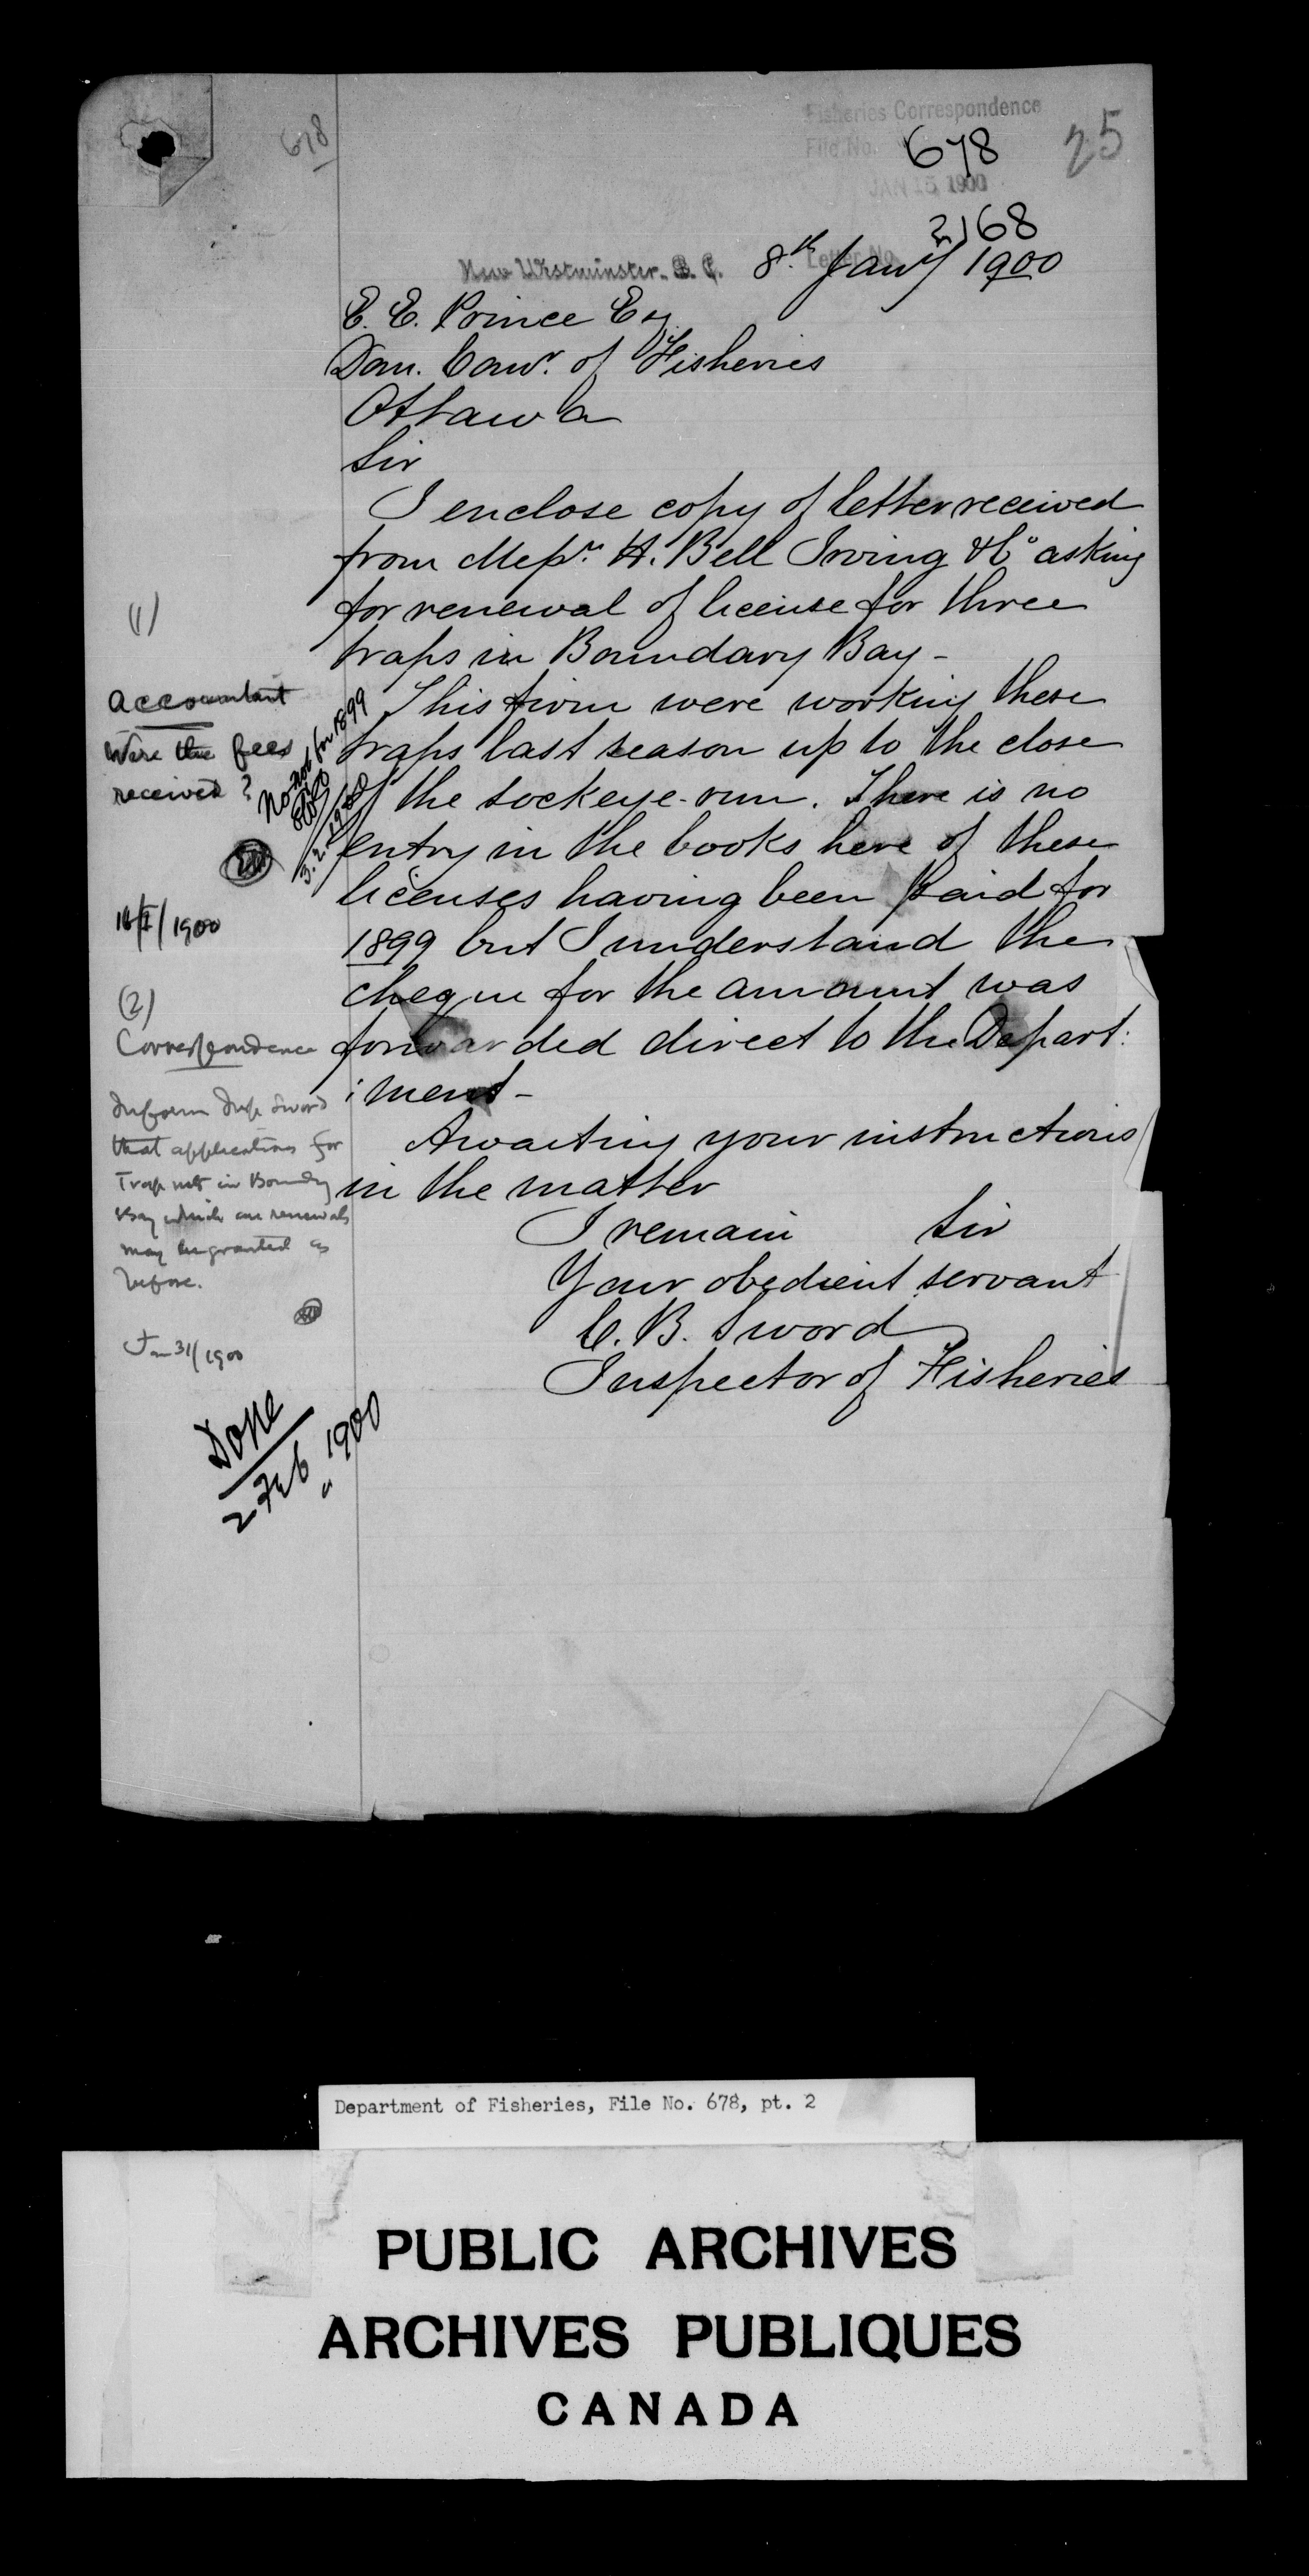 678
Fisheries Correspondence
File No. 678
25
JAN 15 1900
2168
Letter No.
New Westminster. B. C. 8th Jany 1900
E. E. Prince Esq
Dom. Comr. of Fisheries
Ottawa
Sir
I enclose copy of letter received
from Messrs. H. Bell Irving & Co asking
for renewal of license for three
traps in Boundary Bay -
This firm were working these
traps last season up to the close
of the sockeye-run. There is no
entry in the books here of these
licenses having been paid for
1899 but I understand the
cheque for the amount was
forwarded direct to the Depart:
:ment -
Awaiting your instructions
in the matter
I remain Sir
Your obedient servant
C. B. Sword
Inspector of Fisheries
(1)
Accountant
Were the fees
received?
No not for 1899
3.2.1900
16/I/1900
(2)
Correspondence
Inform Insp Sword
that applications for
Trap nets in Boundy
Bay which are renewals
may be granted as
before.
Jan 31/1900
Done
2 Feb 1900
Department of Fisheries, File No. 678, pt. 2
PUBLIC ARCHIVES
ARCHIVES PUBLIQUES
CANADA